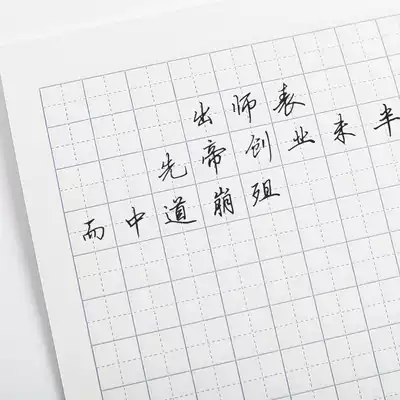 出师表
先帝创业未半
而中道崩殂